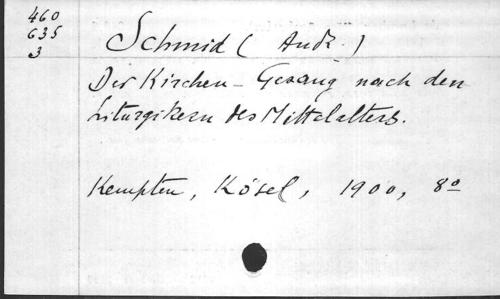 460
635
3
Schmid (Andr.)
Der Kirchen-Gesang nach den
Liturgikern des Mittelalters.
Kempten, Kösel, 1900, 8º